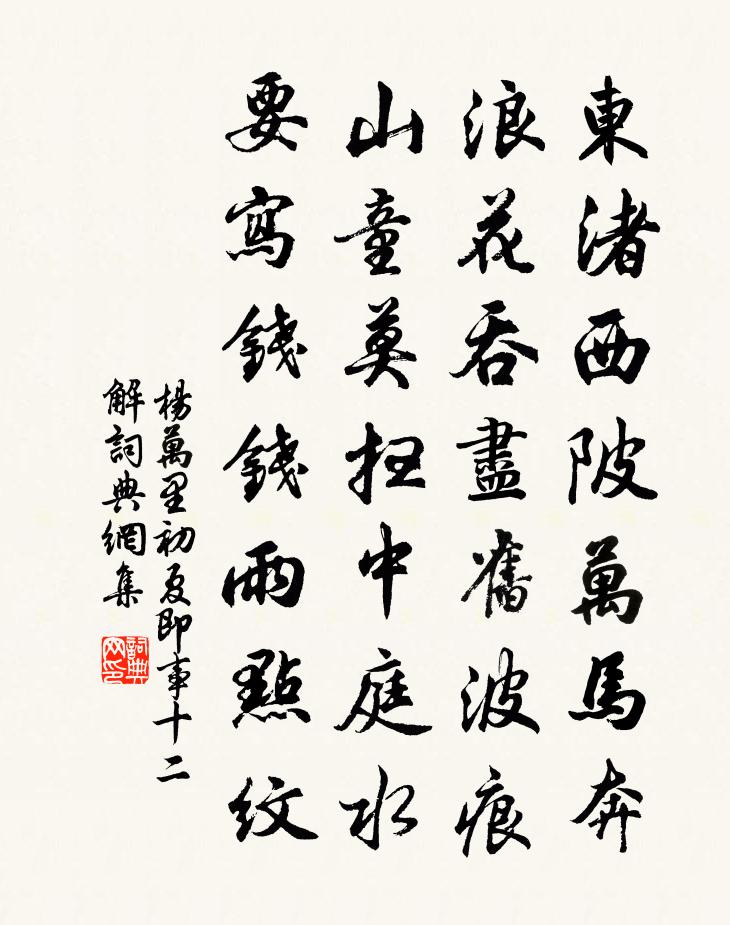 東渚西陂萬馬奔
浪花吞盡舊波痕
山童莫掃中庭水
要寫錢錢雨點紋
楊萬里初夏即事十二
解詞典網集
詞典网印